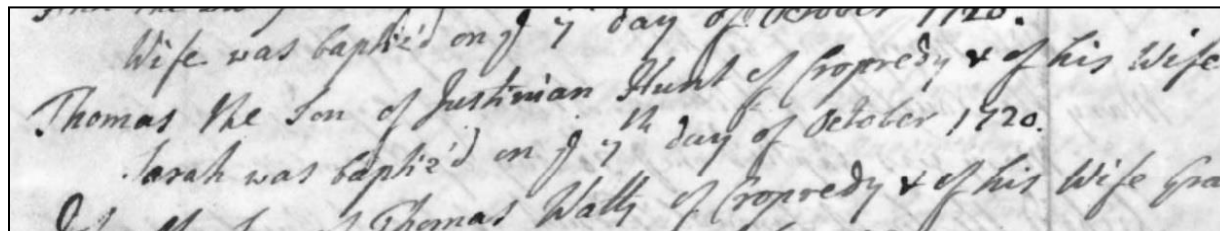 Wife was baptiz'd on ye 7th day of October 1720.
Thomas the Son of Justinian Hunt of Cropredy & of his Wife
Sarah was baptiz'd on ye 7th day of October 1720.
Thomas Watts of Cropredy & of his Wife Gra